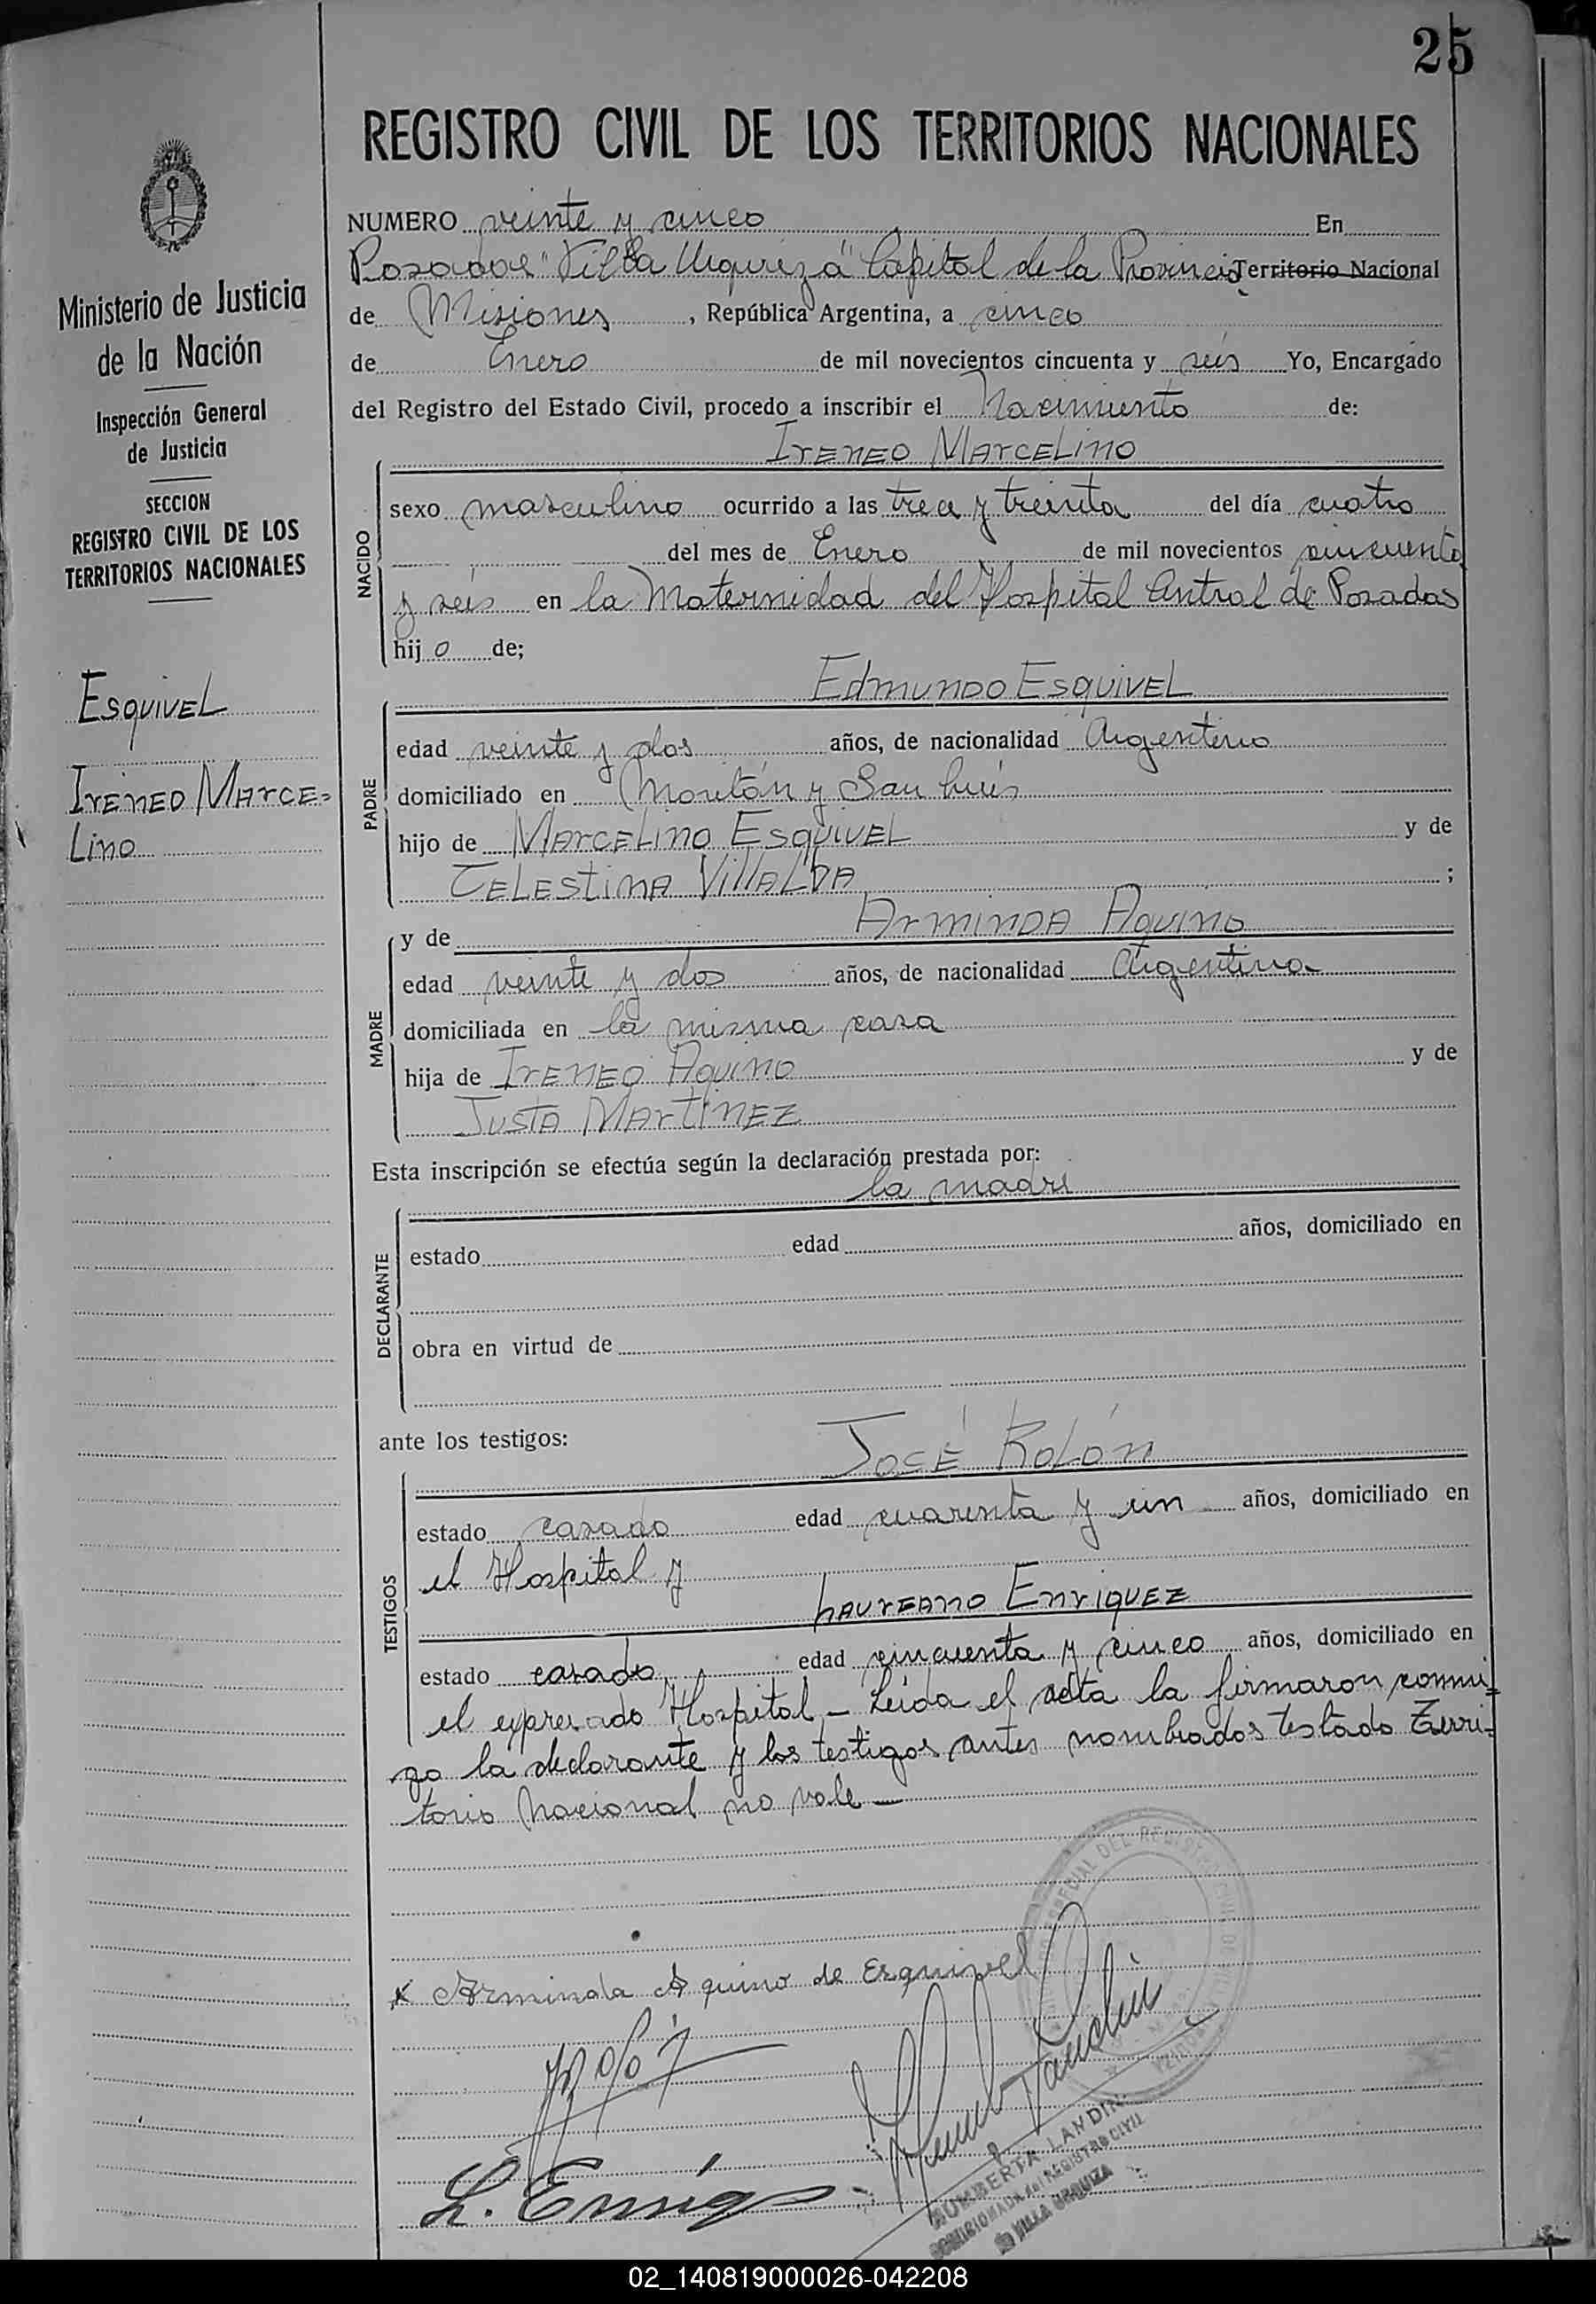 25
REGISTRO CIVIL DE LOS TERRITORIOS NACIONALES
Ministerio de Justicia
de la Nación
Inspección General
de Justicia
SECCION
REGISTRO CIVIL DE LOS
TERRITORIOS NACIONALES
Esquivel
Ireneo Marce=
Lino
NUMERO veinte y cinco En
Posadas "Villa Urquiza" Capital de la Provincia Territorio Nacional
de Misiones, República Argentina, a cinco
de Enero de mil novecientos cincuenta y seis Yo, Encargado
del Registro del Estado Civil, procedo a inscribir el Nacimiento de:
Ireneo Marcelino
NACIDO
sexo masculino ocurrido a las trece y treinta del día cuatro
del mes de Enero de mil novecientos cincuenta
y seis en la Maternidad del Hospital Central de Posadas
hijo de;
Edmundo Esquivel
PADRE
edad veinte y dos años, de nacionalidad Argentino
domiciliado en y San Luis
hijo de Marcelino Esquivel y de
Celestina Villalba ;
y de Arminda Aquino
MADRE
edad veinte y dos años, de nacionalidad Argentina
domiciliada en la misma casa
hija de Ireneo Aquino y de
Justa Martinez
Esta inscripción se efectúa según la declaración prestada por:
la madre
DECLARANTE
estado edad años, domiciliado en
obra en virtud de
ante los testigos:
José Rolón
TESTIGOS
estado casado edad cuarenta y un años, domiciliado en
el Hospital y
Laureano Enriquez
estado casado edad cincuenta y cinco años, domiciliado en
el expresado Hospital – Leida el acta la firmaron conmi=
go la declarante y los testigos antes nombrados testado Terri-
torio Nacional no vale –
x Arminda Aquino de Esquivel
L. Enriq
HUMBERTA LANDIN
COMISIONADA del REGISTRO CIVIL
VILLA URQUIZA
02_140819000026-042208